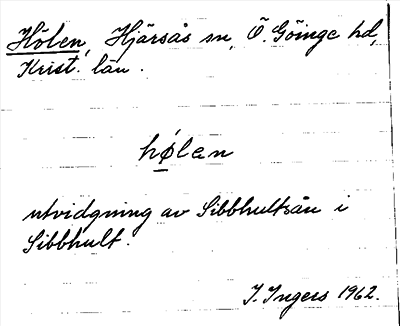 Hölen, Hjärsås sn, Ö. Göinge hd,
Krist. län.
hølen
utvidgning av Sibbhultsån i
Sibbhult.
I. Ingers 1962.